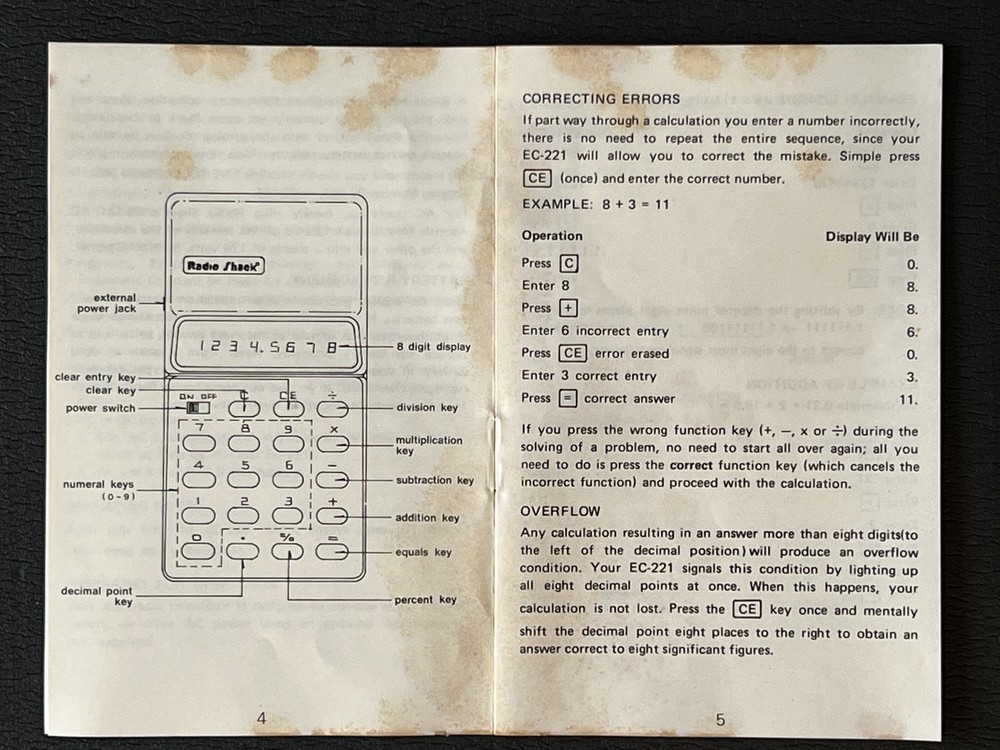 Radio Shack
external
power jack
1 2 3 4. 5 6 7 8
8 digit display
clear entry key
clear key
ON OFF
C
CE
÷
power switch
division key
7
8
9
x
multiplication
key
4
5
6
−
subtraction key
numeral keys
(0-9)
1
2
3
+
addition key
0
.
%
=
equals key
decimal point
key
percent key
4
CORRECTING ERRORS
If part way through a calculation you enter a number incorrectly,
there is no need to repeat the entire sequence, since your
EC-221 will allow you to correct the mistake. Simple press
CE (once) and enter the correct number.
EXAMPLE: 8 + 3 = 11
Operation Display Will Be
Press C 0.
Enter 8 8.
Press + 8.
Enter 6 incorrect entry 6.
Press CE error erased 0.
Enter 3 correct entry 3.
Press = correct answer 11.
If you press the wrong function key (+, −, x or ÷) during the
solving of a problem, no need to start all over again; all you
need to do is press the correct function key (which cancels the
incorrect function) and proceed with the calculation.
OVERFLOW
Any calculation resulting in an answer more than eight digits(to
the left of the decimal position) will produce an overflow
condition. Your EC-221 signals this condition by lighting up
all eight decimal points at once. When this happens, your
calculation is not lost. Press the CE key once and mentally
shift the decimal point eight places to the right to obtain an
answer correct to eight significant figures.
5